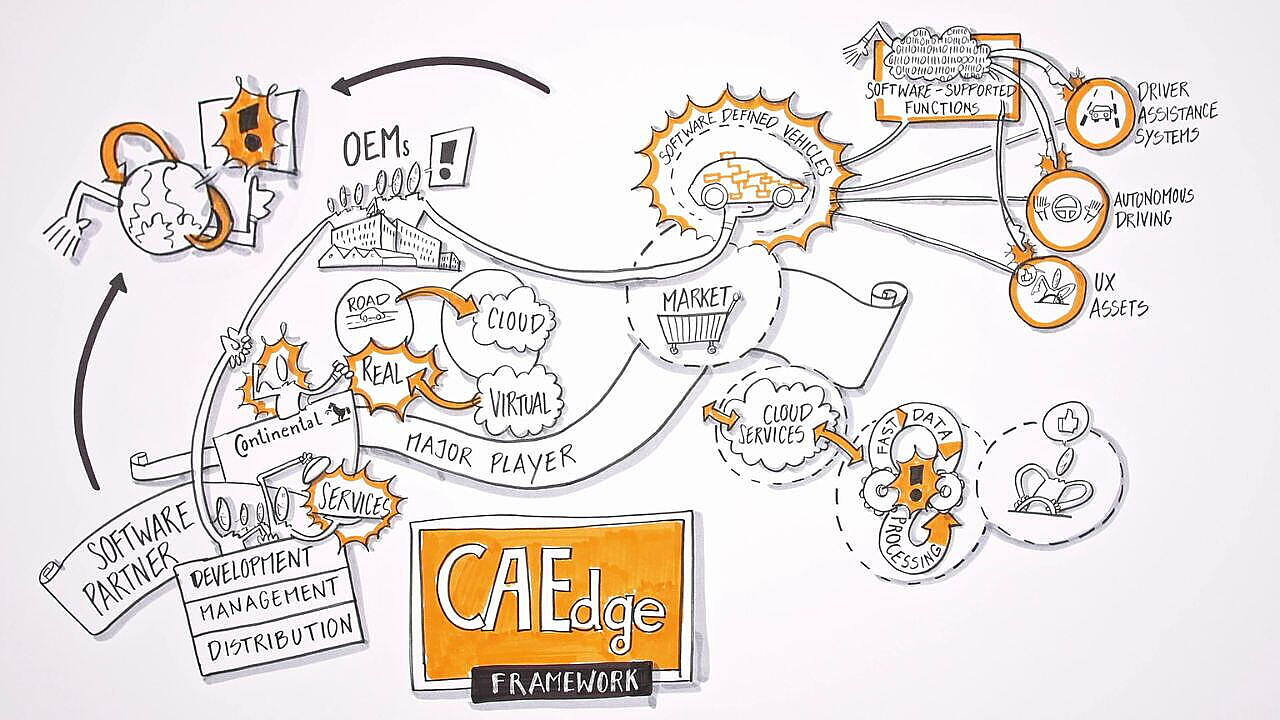 OEMs
SOFTWARE DEFINED VEHICLES
SOFTWARE-SUPPORTED
FUNCTIONS
DRIVER
ASSISTANCE
SYSTEMS
AUTONOMOUS
DRIVING
UX
ASSETS
ROAD
CLOUD
REAL
VIRTUAL
MARKET
Continental
MAJOR PLAYER
CLOUD
SERVICES
FAST DATA
PROCESSING
SERVICES
SOFTWARE
PARTNER
DEVELOPMENT
MANAGEMENT
DISTRIBUTION
CAEdge
FRAMEWORK